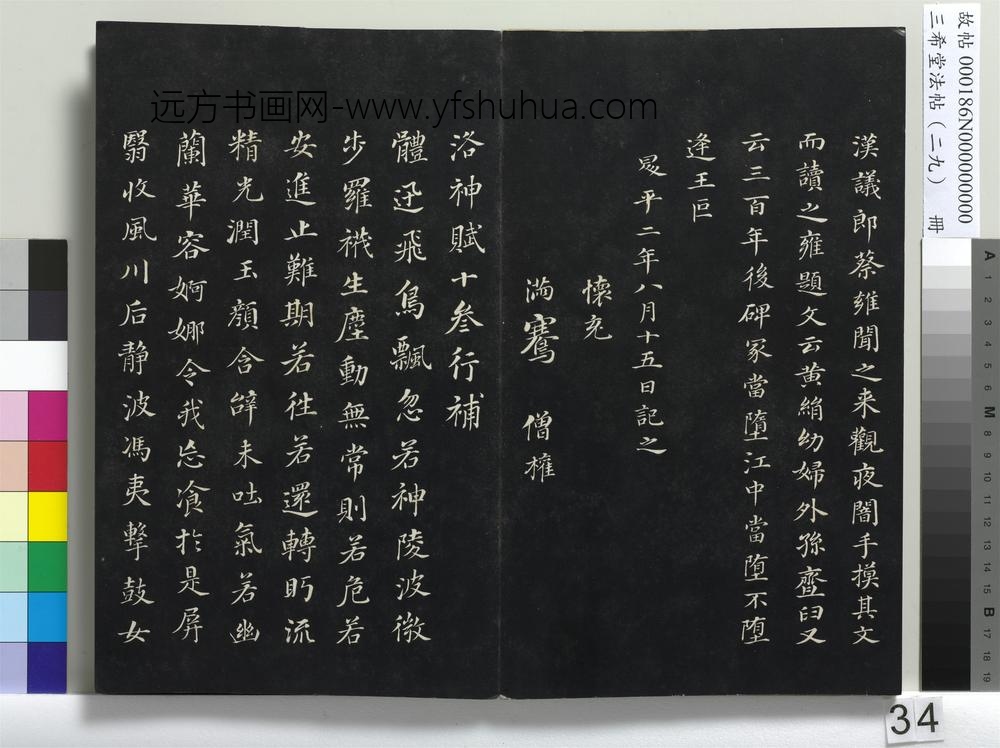 漢議郎蔡雍聞之来觀夜闇手摸其文
而讀之雍題文云黄絹幼婦外孫齏臼又
云三百年後碑冢當墮江中當墮不墮
逢王叵
昇平二年八月十五日記之
懷充
滿騫 僧權
洛神賦十叁行補
體迅飛鳬飄忽若神陵波微
步羅襪生塵動無常則若危若
安進止難期若往若還轉眄流
精光潤玉顏含辭未吐氣若幽
蘭華容婀娜令我忘飡於是屏
翳收風川后静波馮夷擊鼓女
远方书画网-www.yfshuhua.com
故帖 000186N000000000
三希堂法帖（二九） 冊
A 1 2 3 4 5 M 8 9 10 11 12 13 14 15 B 17 18 19
34